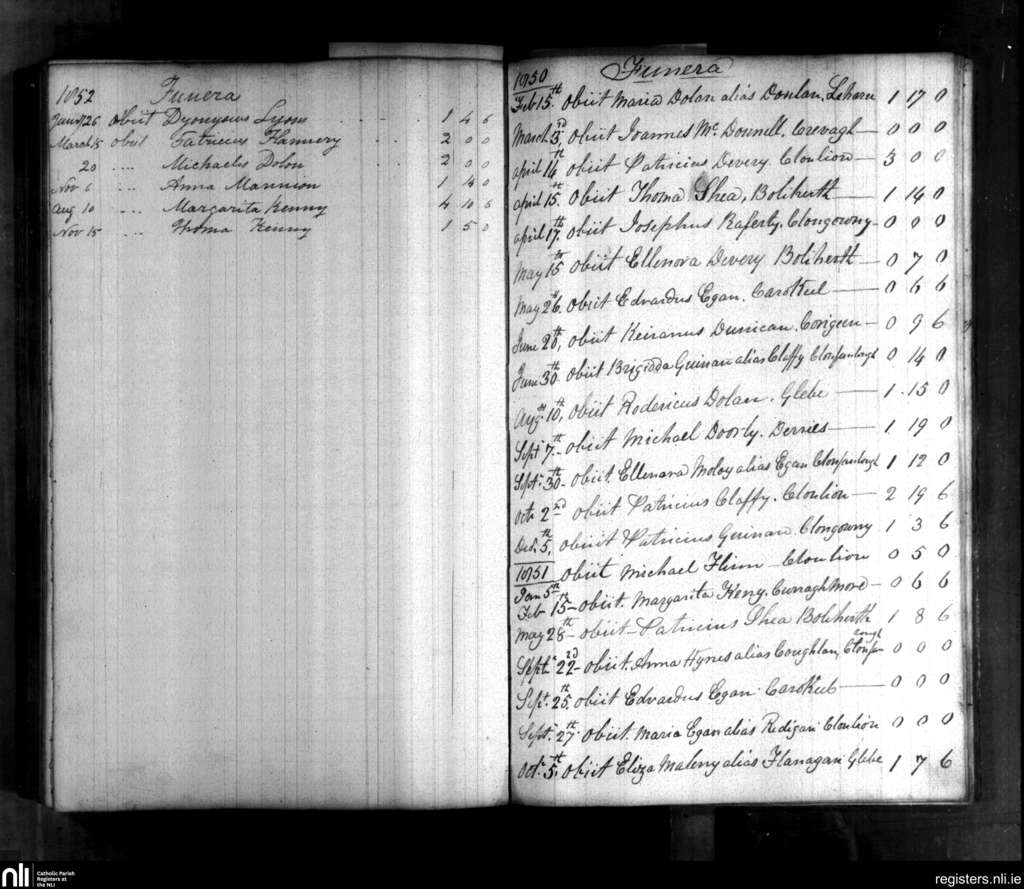 1852 Funera
Januy 26 obiit Dyonysius Lyons 1 4 6
March 15 obiit Patricius Flannery 2 0 0
20 Michaeles Dolon 2 0 0
Nov 6 Anna Mannion 1 4 0
Aug 10 Margarita Kenny 4 10 6
Nov 15 Thoma Kenny 1 5 0
1850 Funera
Feb 15th obiit Maria Dolan alias Donlan, 1 17 0
March 3rd, obiit Joannes Mc Donnell, Crevagh 0 0 0
april 14th obiit Patricius Devery Clonlion 3 0 0
april 15th obiit Thoma Shea, Boliherth 1 14 0
april 17th obiit Josephus Raferty. Clongowny 0 0 0
May 15th obiit Ellenora Devery Boliherth 0 7 0
May 26th obiit Edvardus Egan. CaroKeel 0 6 6
June 20th, obiit Keiranus Dunican. Corigeen 0 9 6
June 30th obiit Brigidda Guinan alias Claffy 0 14 0
Aug 10th, obiit Rodericus Dolan. Glebe 1 15 0
Sept 7th obiit Michael Doorly. Derries 1 19 0
Sept 30th obiit. Ellenara Moloy alias Egan 1 12 0
Oct 2nd obiit Patricius Claffy. Clonlion 2 19 6
Dec. 5th, obiiit Patricius Guinan. Clongowny 1 3 6
1851
Jan 5th obiit Michael Flinn Clonlion 0 5 0
Feb 15th obiit. Margarita Keny. Curragh More 0 6 6
May 28th obiit Patricius Shea Boliherth 1 8 6
Sept 22nd obiit. Anna Hynes alias Coughlan, 0 0 0
Sept. 25th obiit Edvardus Egan CaroKeel 0 0 0
Sept 27th obiit. Maria Egan alias Redigan Clonlion 0 0 0
Oct. 5th, obiit Eliza Maleny alias Flanagan Glebe 1 7 6
nli Catholic Parish
Registers at
the NLI
registers.nli.ie